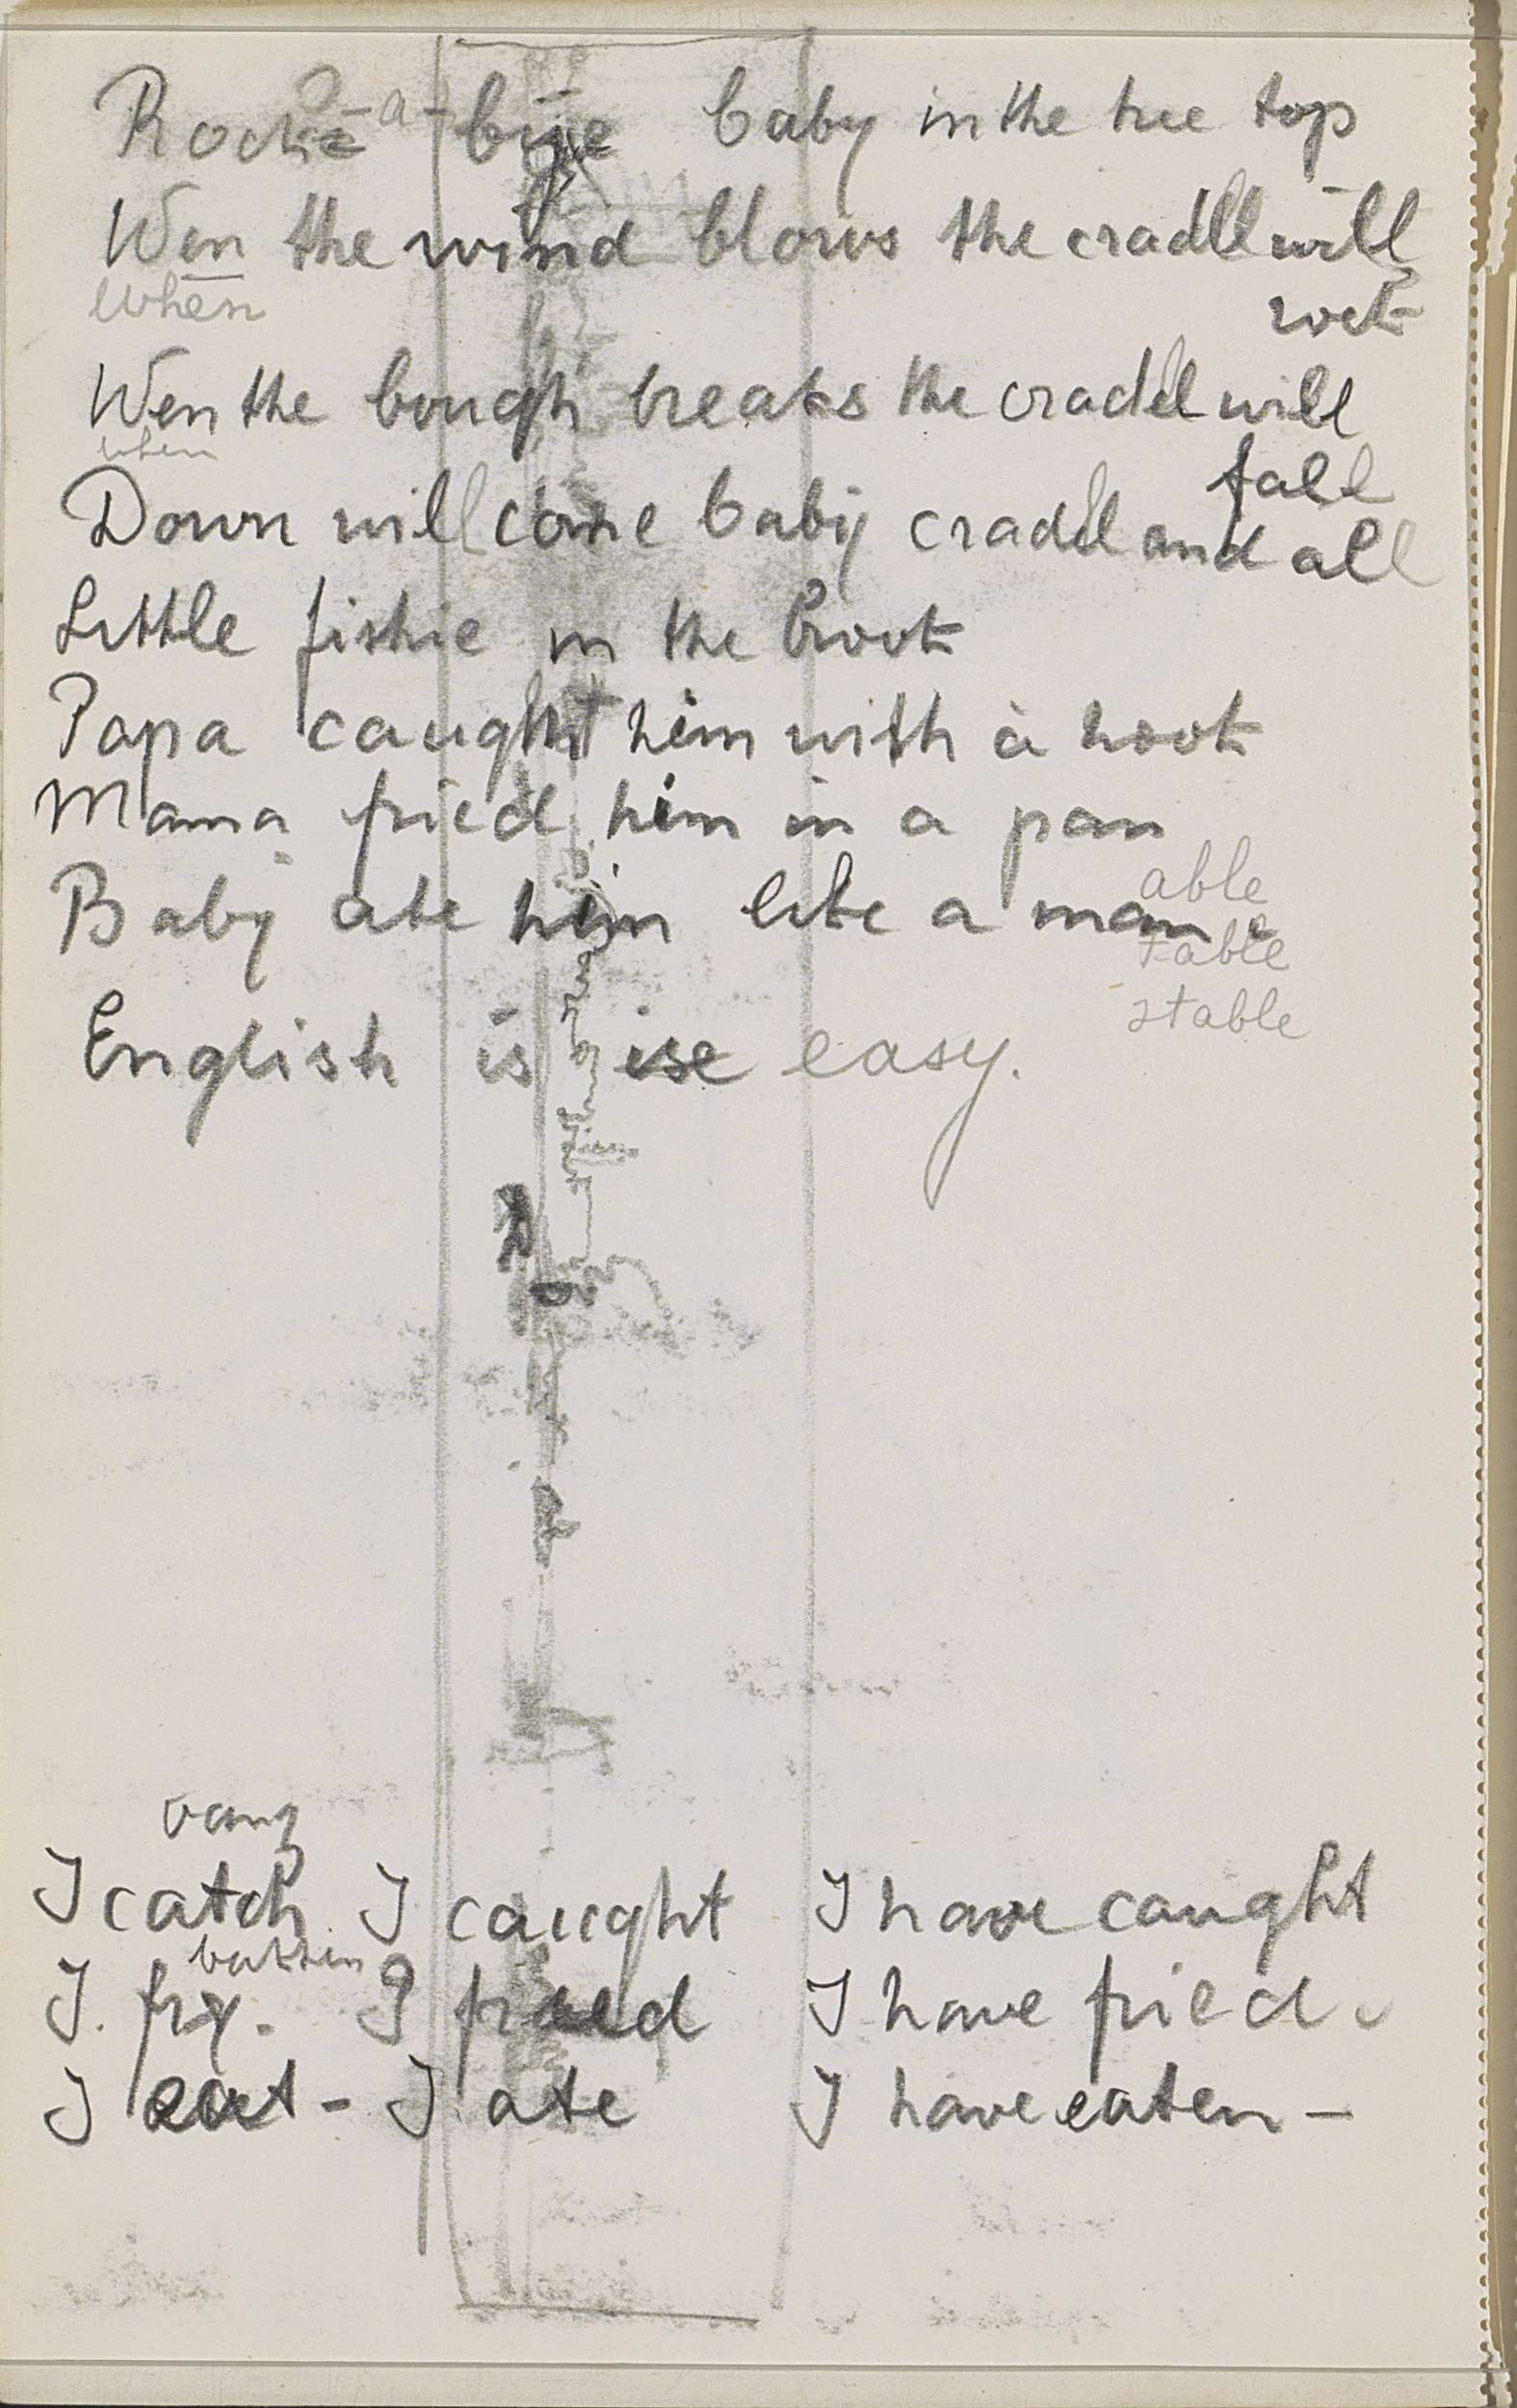 Rock-a-bye baby in the tree top
Wen the wind blows the cradle will
When
rock
Wen the bough breaks the cradel will
when
fall
Down will come baby cradel and all
Little fishie in the brook
Papa caught him with a hook
Mama fried him in a pan
Baby ate him like a man.
able
table
stable
English is ise easy.
vang
I catch. I caught I have caught
bakken
I. fry. I fried I have fried.
I eat - I ate I have eaten -